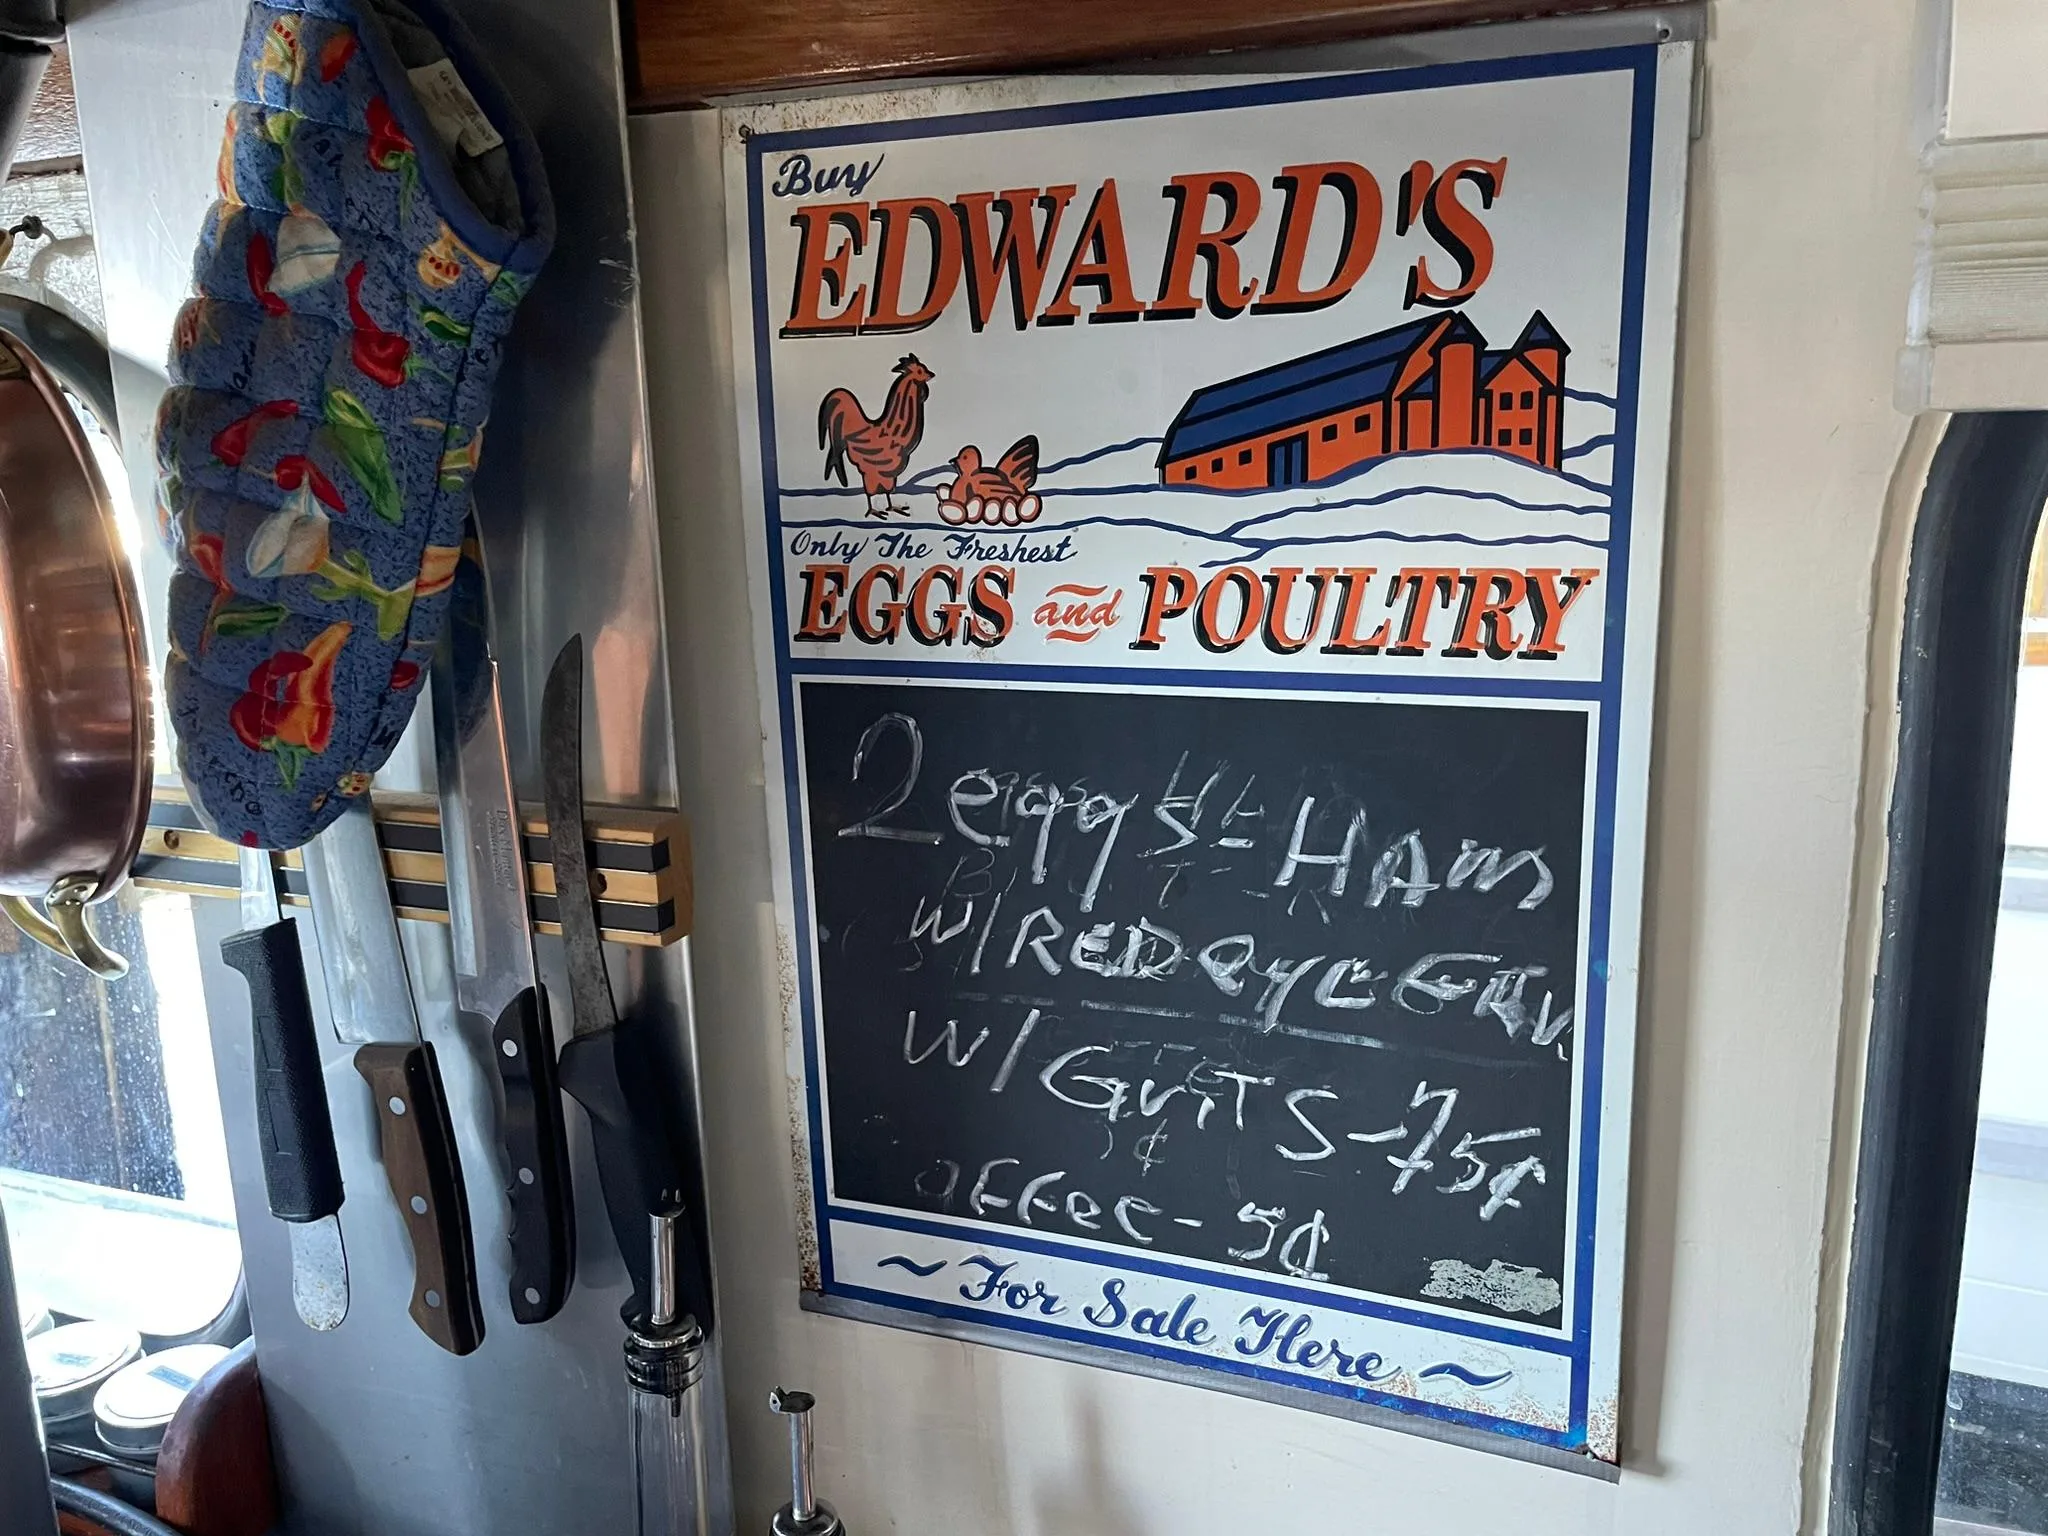 Buy
EDWARD'S
Only The Freshest
EGGS and POULTRY
2 eggs - HAM
W/ RED eye GRAV
W/ GRITS - 75¢
OFFee - 5¢
~ For Sale Here ~